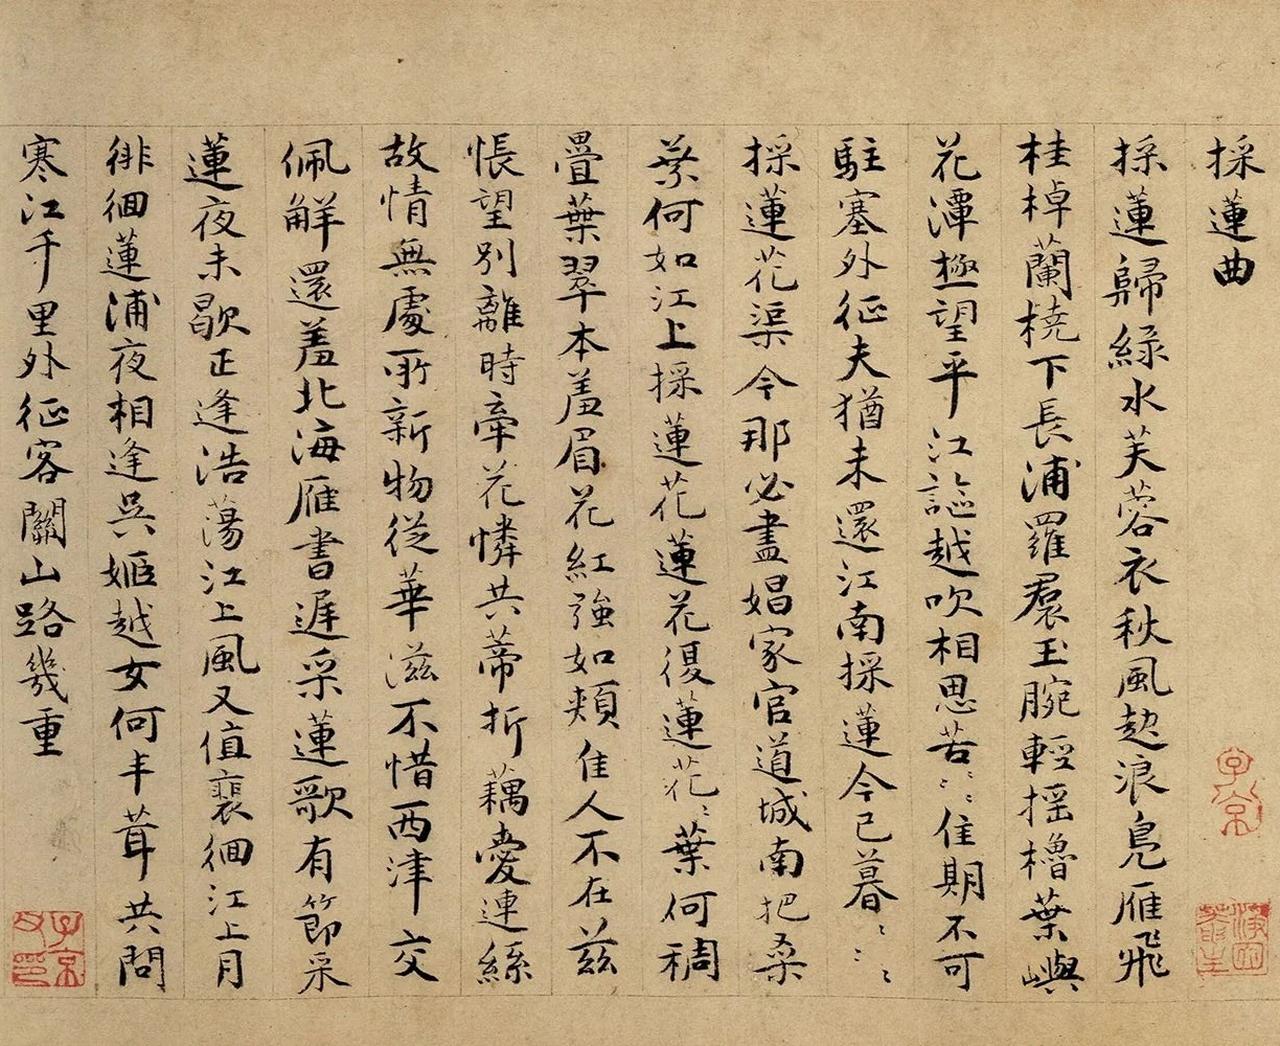 採蓮曲
採蓮歸綠水芙蓉衣秋風起浪鳧雁飛
桂棹蘭橈下長浦羅裙玉腕輕搖櫓葉嶼
花潭極望平江謳越吹相思苦〻〻佳期不可
駐塞外征夫猶未還江南採蓮今已暮〻〻〻
採蓮花渠今那必盡娼家官道城南把桑
葉何如江上採蓮花蓮花復蓮花〻葉何稠
疊葉翠本羞眉花紅強如頰佳人不在茲
悵望別離時牽花憐共蒂折藕愛連絲
故情無處所新物從華滋不惜西津交
佩解還羞北海雁書遲采蓮歌有節采
蓮夜未歇正逢浩蕩江上風又值裴徊江上月
徘徊蓮浦夜相逢吳姬越女何丰茸共問
寒江千里外征客關山路幾重
子京
子京父印